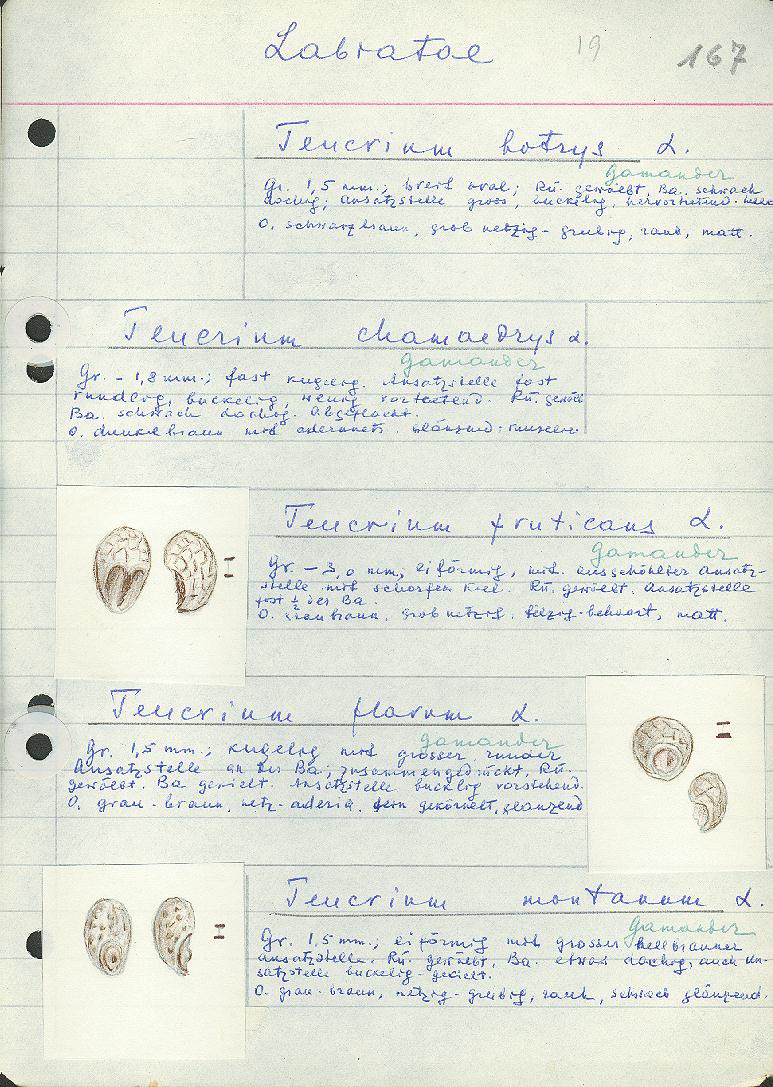 Labiatae 19 167
Teucrium botrys L.
Gamander
Gr. 1,5 mm.; breit oval; Rü. gewölbt, Ba. schwach
dachig; Ansatzstelle gross, buckelig, hervortretend.
O. schwarzbraun, grob netzig-grubig, rauh, matt.
Teucrium chamaedrys L.
Gamander
Gr. - 1,8 mm.; fast kugelig. Ansatzstelle fast
rundlog, buckelig, wenig vortretend. Rü. gewölbt
Ba. schwach dachig. Abgeflacht.
O. dunkelbraun mit adernnetz. glänzend-runzelig.
Teucrium fruticans L.
Gamander
Gr. - 3,0 mm; eiförmig, mit ausgehöhlter Ansatz-
stelle mit scharfem Kiel. Rü. gewölbt. Ansatzstelle
fast ½ der Ba.
O. graubraun. grob netzig. filzig-behaart, matt.
Teucrium flavum L.
Gamander
Gr. 1,5 mm.; kugelig mit grosser runder
Ansatzstelle an der Ba; zusammengedrückt, Rü.
gewölbt. Ba gekielt. Ansatzstelle bucklig vorstehend.
O. grau-braun, netz-aderig, fein gekörnelt, glänzend
Teucrium montanum L.
Gamander
Gr. 1,5 mm.; eiförmig mit grosser hellbrauner
Ansatzstelle. Rü. gewölbt, Ba. etwas dachig, auch An-
satzstelle buckelig-gekielt.
O. grau-braun, netzig-grubig, rauh, schwach glänzend.